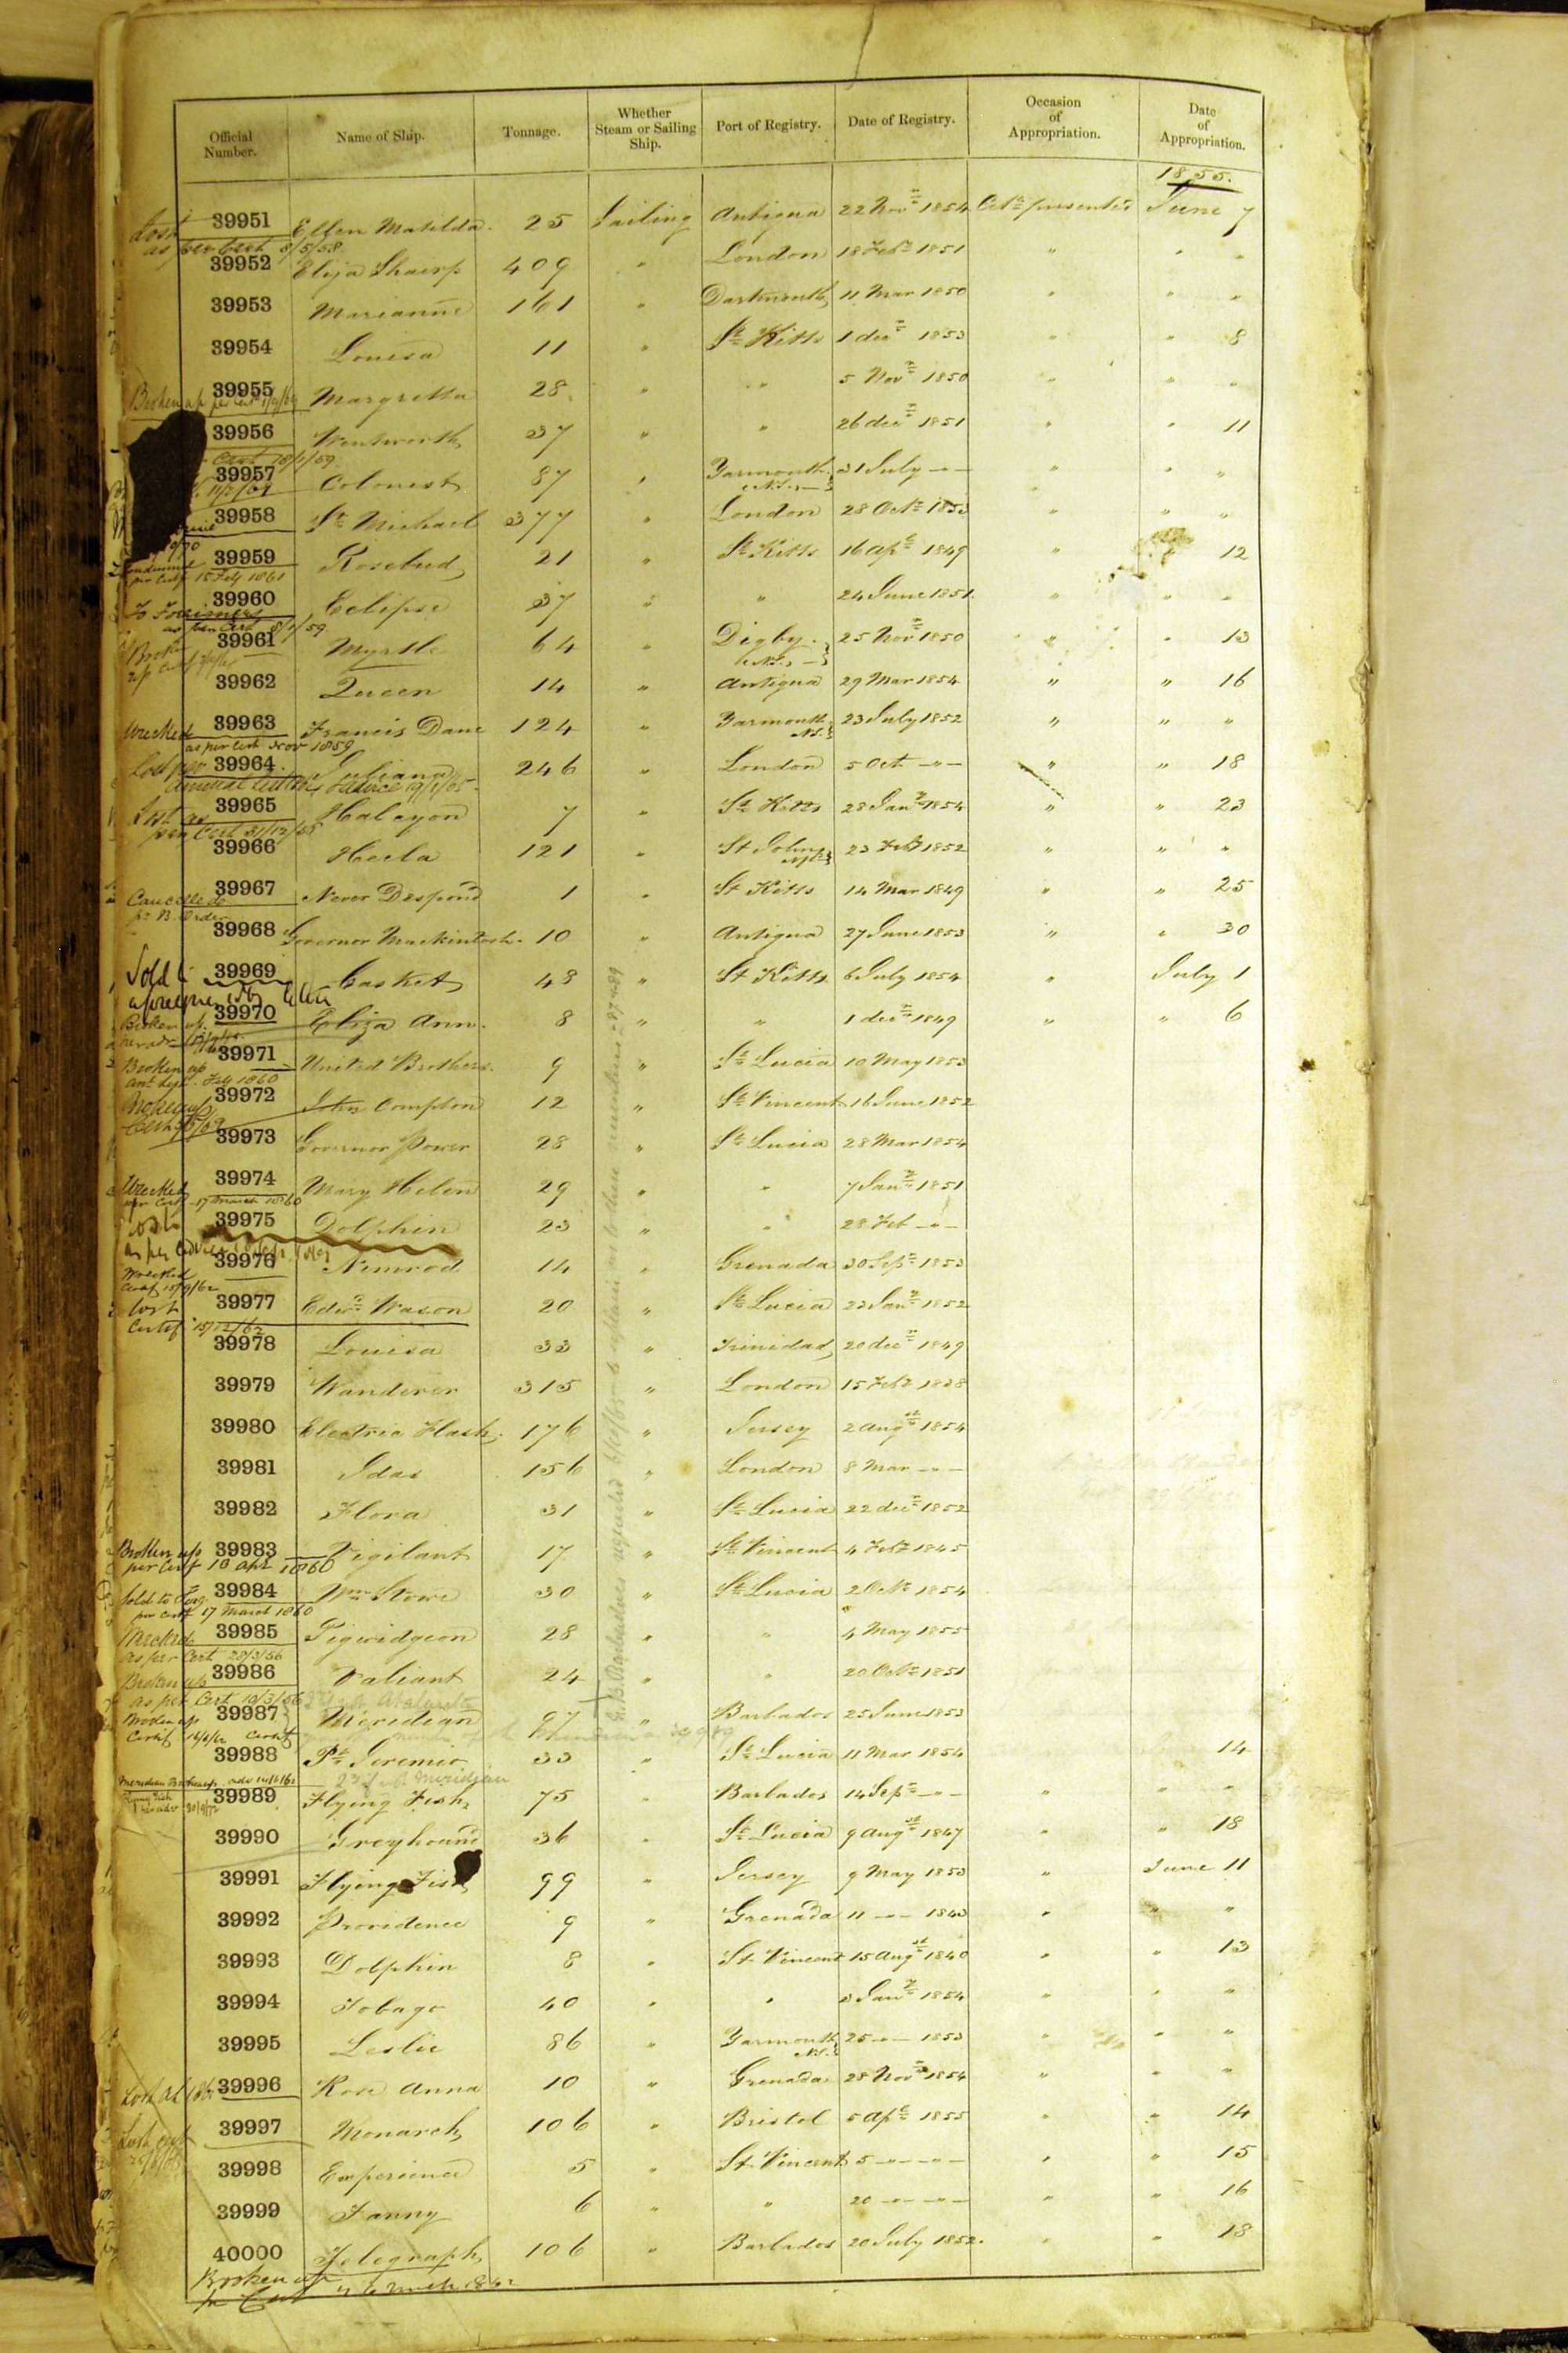 Official Number. Name of Ship. Tonnage. Whether Steam or Sailing Ship. Port of Registry. Date of Registry. Occasion of Appropriation. Date of Appropriation.
1855.
39951 Ellen Matilda. 25 Sailing Antigua 22 Nov 1854 presented June 7
Lost as per Cert 8/5/58
39952 Eliza Sharp 409 " London 18 Feb 1851 " " "
39953 Marianne 161 " Dartmouth 11 Mar 1850 " " "
39954 Louisa 11 " St Kitts 1 dec 1853 " " 8
39955 Margretta 28 " " 5 Nov 1850 " " "
Broken up per Cert
39956 Wentworth 37 " " 26 dec 1851 " " 11
Cert 18/1/59
39957 Colonist 87 " Yarmouth N.S. 31 July -"- " " "
39958 St Michael 377 " London 28 Oct 1853 " " "
39959 Rosebud 21 " St Kitts 16 apl 1849 " " 12
per Cert 15 Feby 1861
39960 Eclipse 37 " " 24 June 1851 " " "
To Foreigners as per Cert 8/1/59
39961 Myrtle 64 " Digby. N.S. 25 Nov 1850 " " 13
Broken up Cert
39962 Queen 14 " Antigua 29 Mar 1854 " " 16
39963 Francis Dane 124 " Yarmouth N.S. 23 July 1852 " " "
Wrecked as per Cert Nov 1859
39964. Juliana 246 " London 5 Oct -"- " " 18
Lost per
39965 Halcyon 7 " St Kitts 28 Jany 1854 " " 23
Lost as per Cert 31/12/55
39966 Hecla 121 " St Johns 23 Feb 1852 " " "
39967 Never Despond 1 " St Kitts 14 Mar 1849 " " 25
Cancelled pr B. Order
39968 Governor Mackintosh. 10 " Antigua 27 June 1853 " " 30
39969 Casket 48 " St Kitts 6 July 1854 " July 1
Sold
39970 Eliza Ann. 8 " " 1 dec 1849 " " 6
Broken up.
39971 United Brothers. 9 " St Lucia 10 May 1853
Broken up Feby 1860
39972 John Compton 12 " St Vincent 16 June 1852
Broken up
39973 Governor Power 28 " St Lucia 28 Mar 1854
39974 Mary Helen 29 " " 7 Jany 1851
Wrecked per Cert 17 March 1860
39975 Dolphin 23 " " 28 Feb -"-
Lost as per
39976 Nimrod 14 " Grenada 30 Sep 1853
Wrecked Certif 15/9/62
39977 Edwd Wason 20 " St Lucia 23 Jany 1852
Lost Certif 15/12/62
39978 Louisa 33 " Trinidad 20 dec 1849
39979 Wanderer 315 " London 15 Feb 1838
39980 Electric Flash. 176 " Jersey 2 augst 1854
39981 Idas 156 " London 8 Mar -"-
39982 Flora 31 " St Lucia 22 dec 1852
39983 Vigilant 17 " St Vincent 4 Feb 1845
Broken up per Cert 10 Apl 1860
39984 Wm Stowe 30 " St Lucia 2 Oct 1854
Sold to Forg. per Cert 17 March 1860
39985 Pigwidgeon 28 " " 4 May 1855
Wrecked as per Cert 28/3/56
39986 Valiant 24 " " 20 Oct 1851
Broken up as per Cert 10/3/56
39987 Meridian 97 " Barbados 25 June 1853
Broken up Certif 14/6/62
39988 Pt Jeremie 33 " St Lucia 11 Mar 1854 14
39989 Flying Fish 75 " Barbados 14 Sep -"- " " "
39990 Greyhound 36 " St Lucia 9 augst 1847 " " 18
39991 Flying Fish 99 " Jersey 9 May 1853 " June 11
39992 Providence 9 " Grenada 11 -"- 1843 " " "
39993 Dolphin 8 " St Vincent 15 augst 1840 " " 13
39994 Tobago 40 " " 3 Jany 1854 " " "
39995 Leslie 86 " Yarmouth N.S. 25 -"- 1853 " " "
39996 Rose Anna 10 " Grenada 28 Nov 1854 " " "
39997 Monarch 106 " Bristol 5 apl 1855 " " 14
39998 Experience 5 " St Vincent 5 -"- -"- " " 15
39999 Fanny 6 " " 20 -"- -"- " " 16
40000 Telegraph 106 " Barbados 20 July 1852. " " 18
Broken up